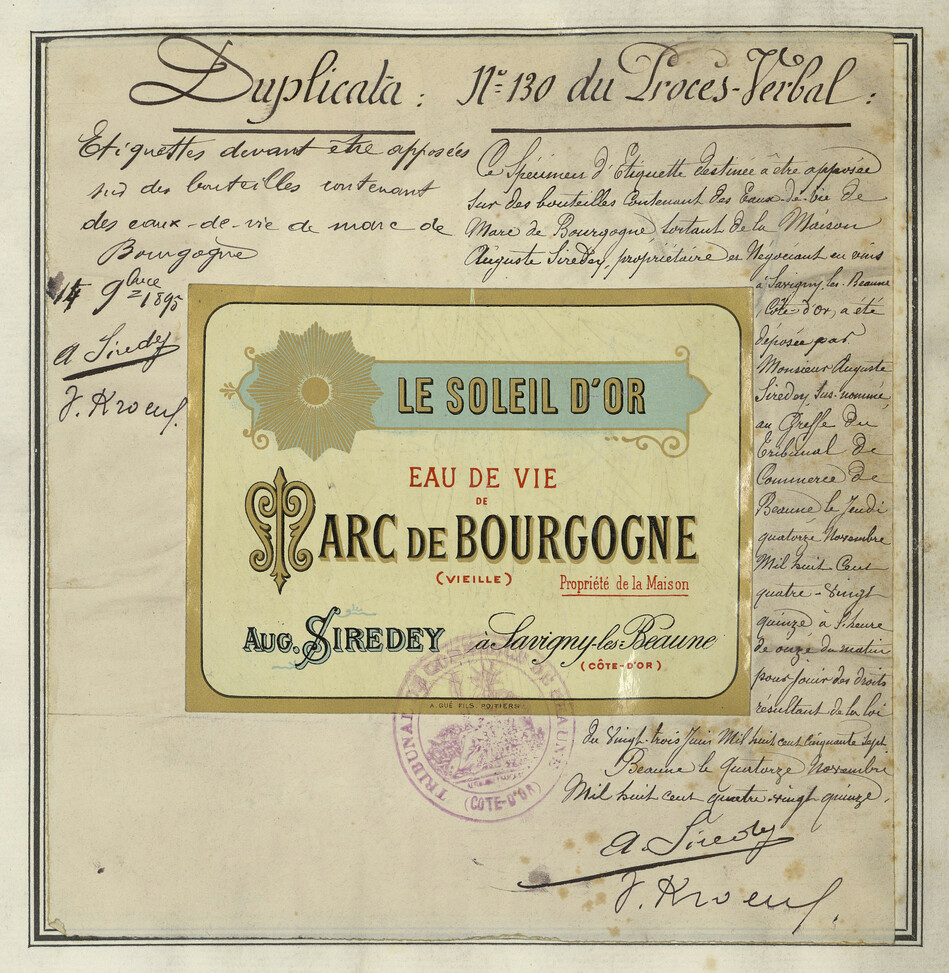 Duplicata : N° 130 du Procès-Verbal :
Etiquettes devant être apposées
sur des bouteilles contenant
des eaux-de-vie de marc de
Bourgogne
14 9bre 1895
A Siredey
J. Kroeul
Ce Spécimen d'Etiquette destinée à être apposée
sur des bouteilles contenant des Eaux-de-Vie de
Marc de Bourgogne, sortant de la Maison
Auguste Siredey, propriétaire et Négociant en vins
à Savigny-les-Beaune
(Côte-d'or), a été
déposée par
Monsieur Auguste
Siredey, sus-nommé,
au Greffe du
Tribunal de
Commerce de
Beaune le Jeudi
quatorze Novembre
Mil huit Cent
quatre-vingt
quinze à l'heure
de onze du matin
pour jouir des droits
résultant de la loi
du Vingt-trois Juin Mil huit cent cinquante sept.
Beaune le Quatorze Novembre
Mil huit cent quatre-vingt quinze.
A. Siredey
J. Kroeul
LE SOLEIL D'OR
EAU DE VIE
DE
MARC DE BOURGOGNE
(VIEILLE)
Propriété de la Maison
AUG. SIREDEY à Savigny-les-Beaune
(CÔTE-D'OR)
A. GUÉ FILS POITIERS
TRIBUNAL DE COMMERCE DE BEAUNE
(COTE-D'OR)